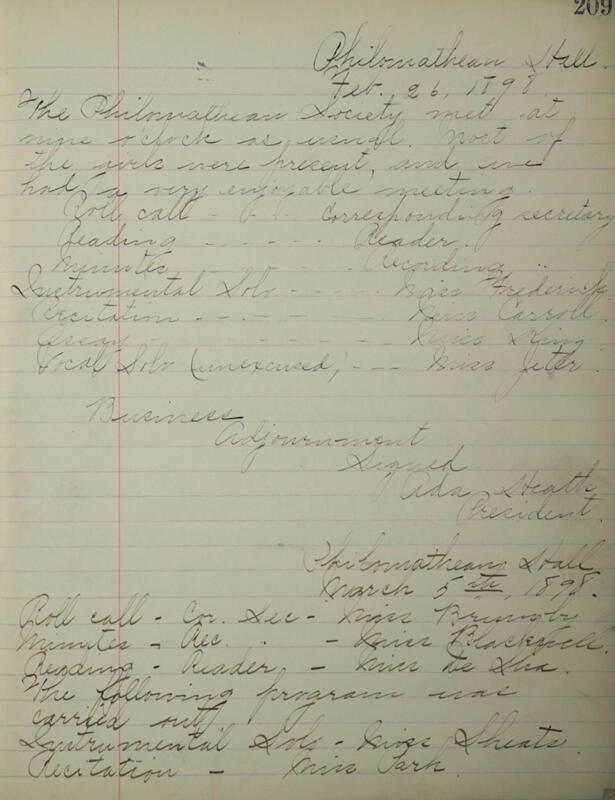 209
Philomathean Hall.
Feb. 26, 1898.
The Philomathean Society met at
nine o'clock as usual. Most of
the girls were present, and we
had a very enjoyable meeting.
Roll call - - - Corresponding secretary
Reading - - - - - Reader.
Minutes - - - - - Recording "
Instrumental Solo - - - - Miss Frederick
Recitation - - - - - Miss Carroll.
Essay - - - - - - Miss King
Vocal Solo (unexcused) - - - Miss Jeter.
Business
Adjournment
Signed
Ada Heath
President.
Philomathean Hall
March 5th, 1898.
Roll call - Cor. Sec - Miss Brumby
Minutes - Rec. " - Miss Blackwell.
Reading - Reader - Miss
The following program was
carried out
Instrumental Solo - Miss Sheats.
Recitation - Miss Park.